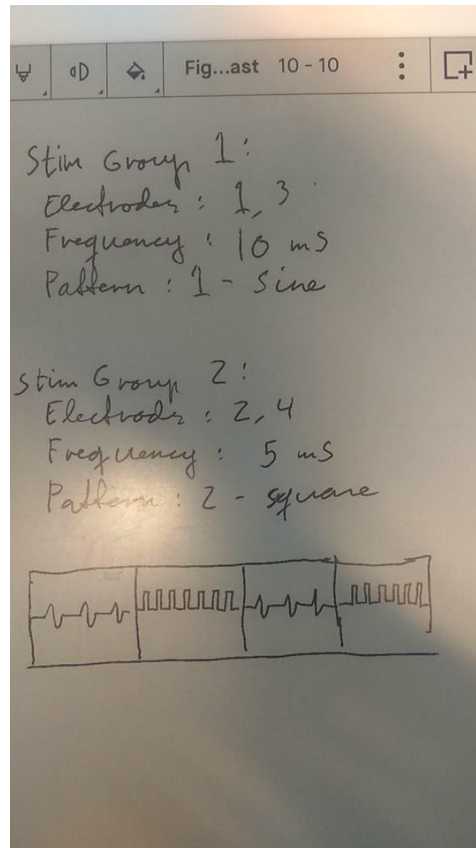 Fig...ast 10 - 10
Stim Group 1:
Electrodes: 1, 3
Frequency: 10 mS
Pattern: 1 - Sine
Stim Group 2:
Electrods: 2, 4
Frequency: 5 mS
Pattern: 2 - square